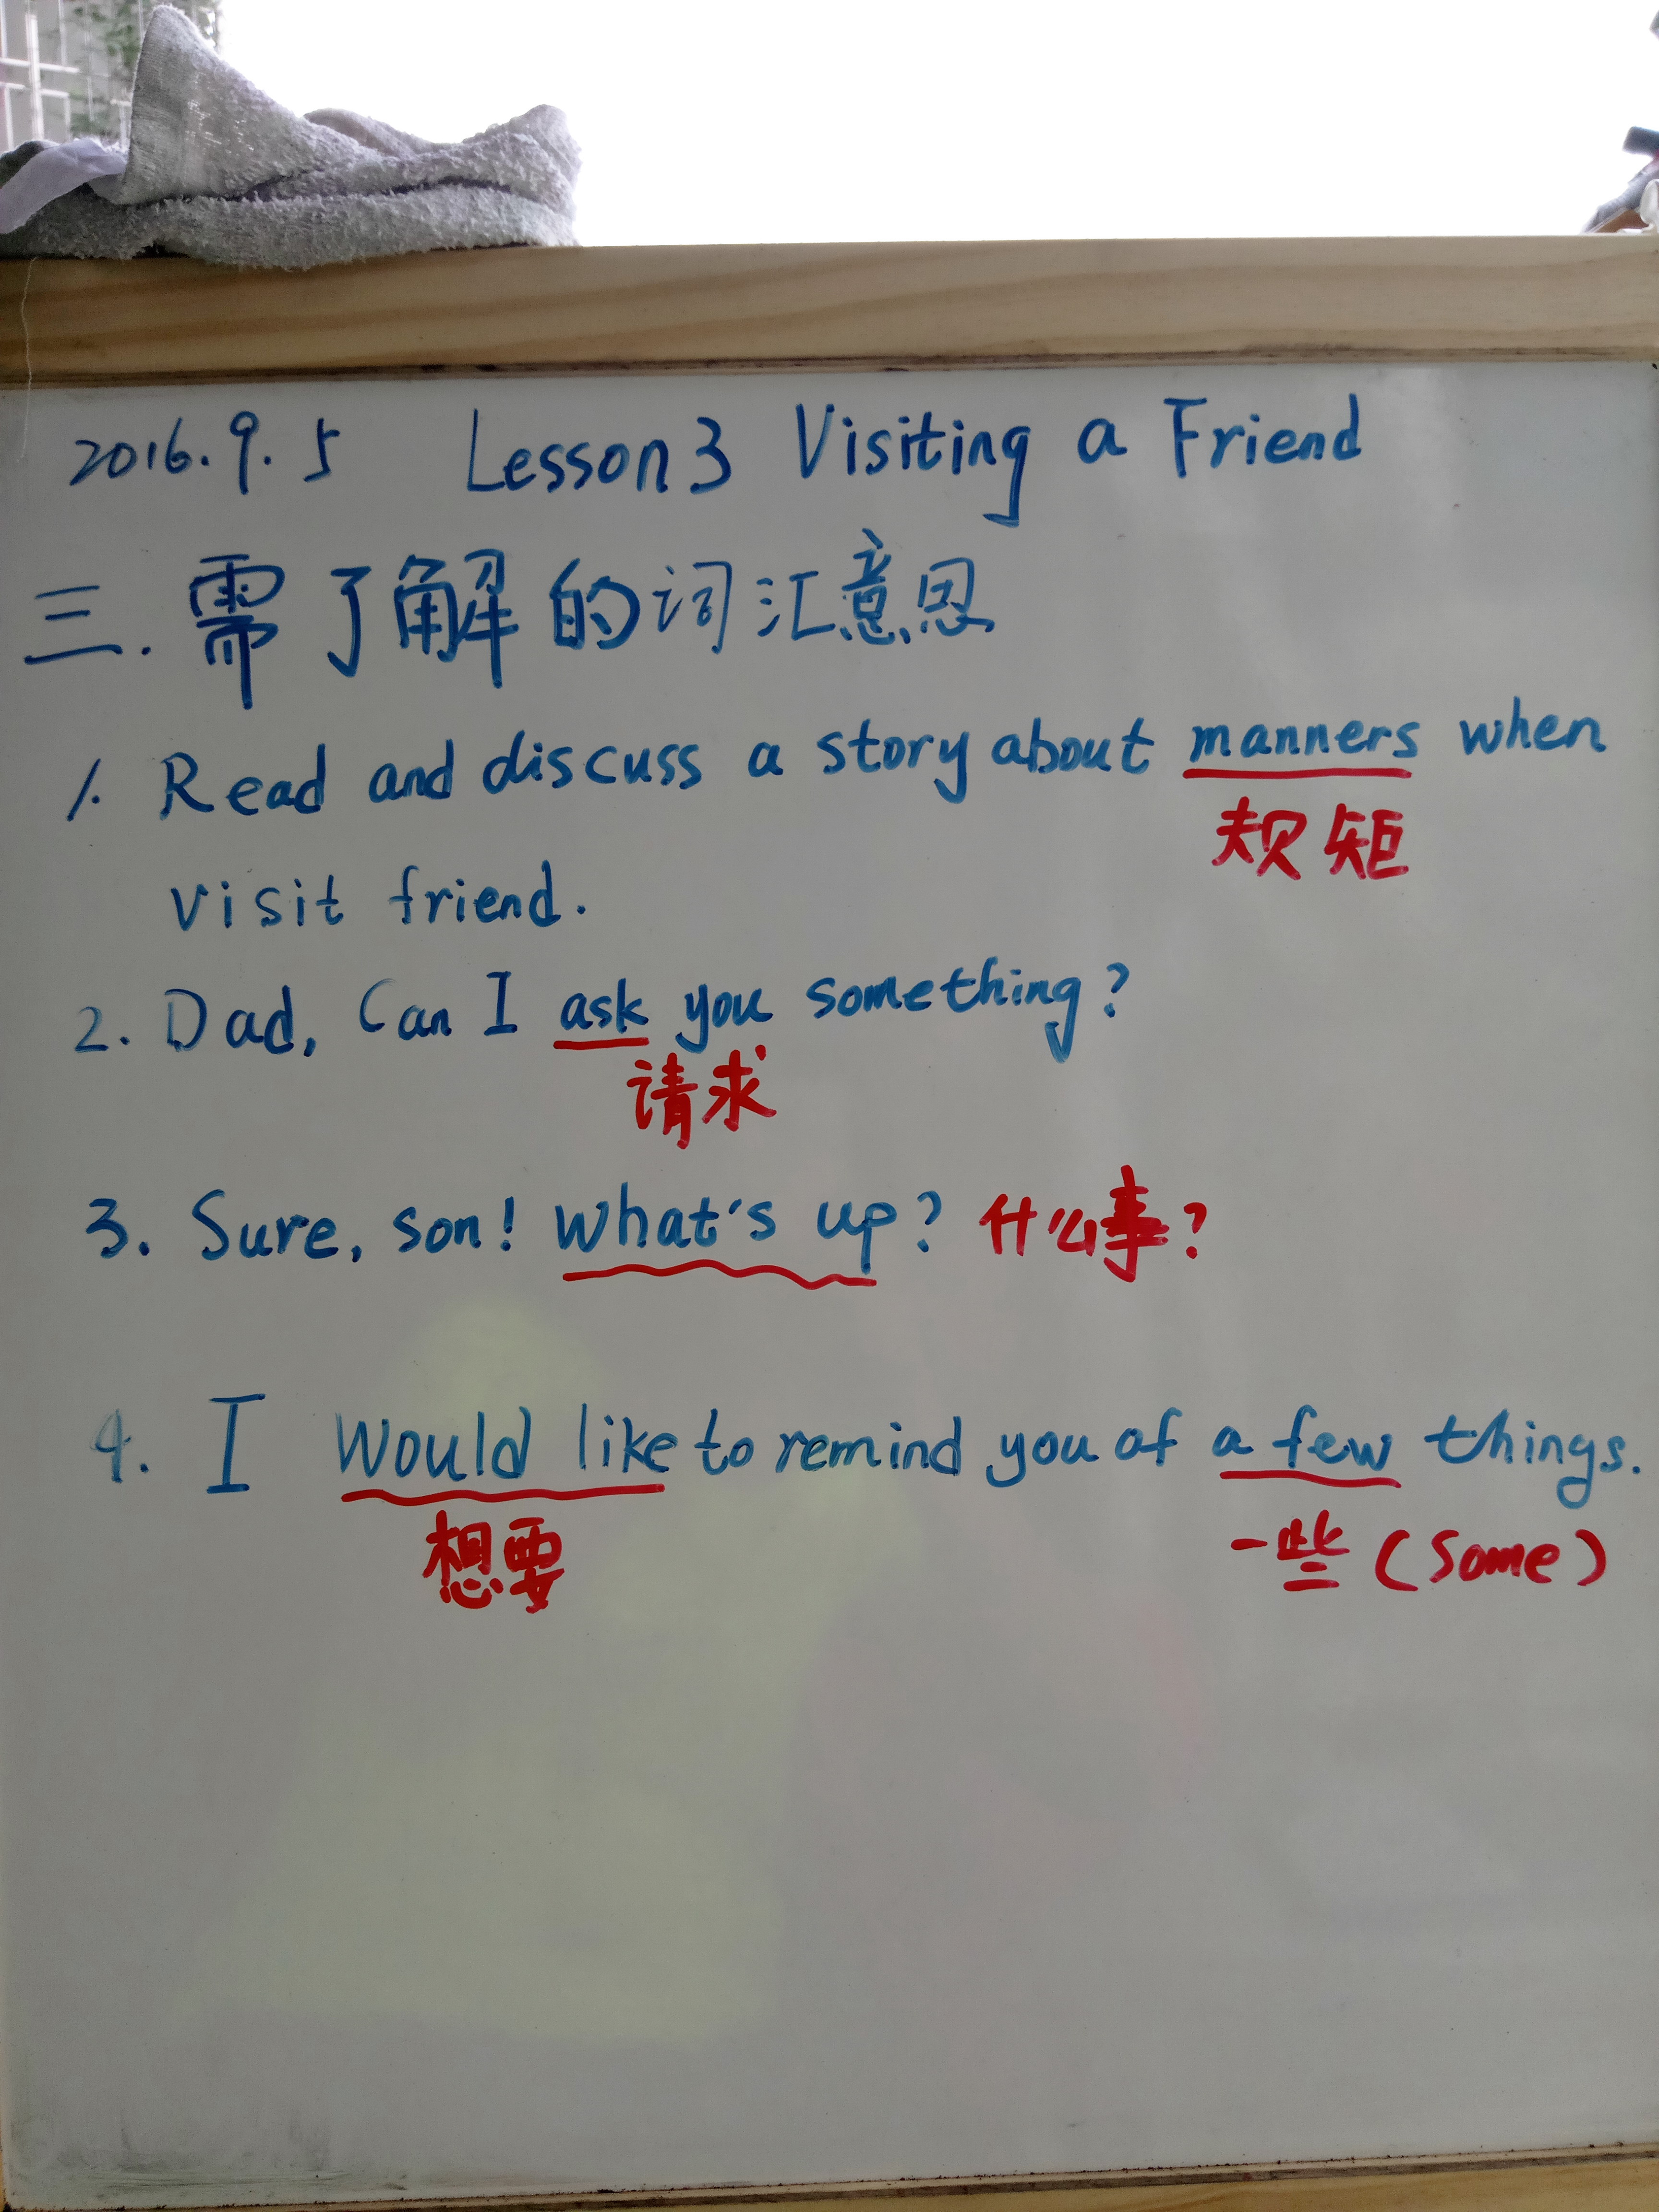 2016.9.5 Lesson 3 Visiting a Friend
三.需了解的词汇意思
1. Read and discuss a story about manners when
规矩
visit friend.
2. Dad, Can I ask you something?
请求
3. Sure, son! What's up? 什么事?
4. I Would like to remind you of a few things.
想要 一些(Some)